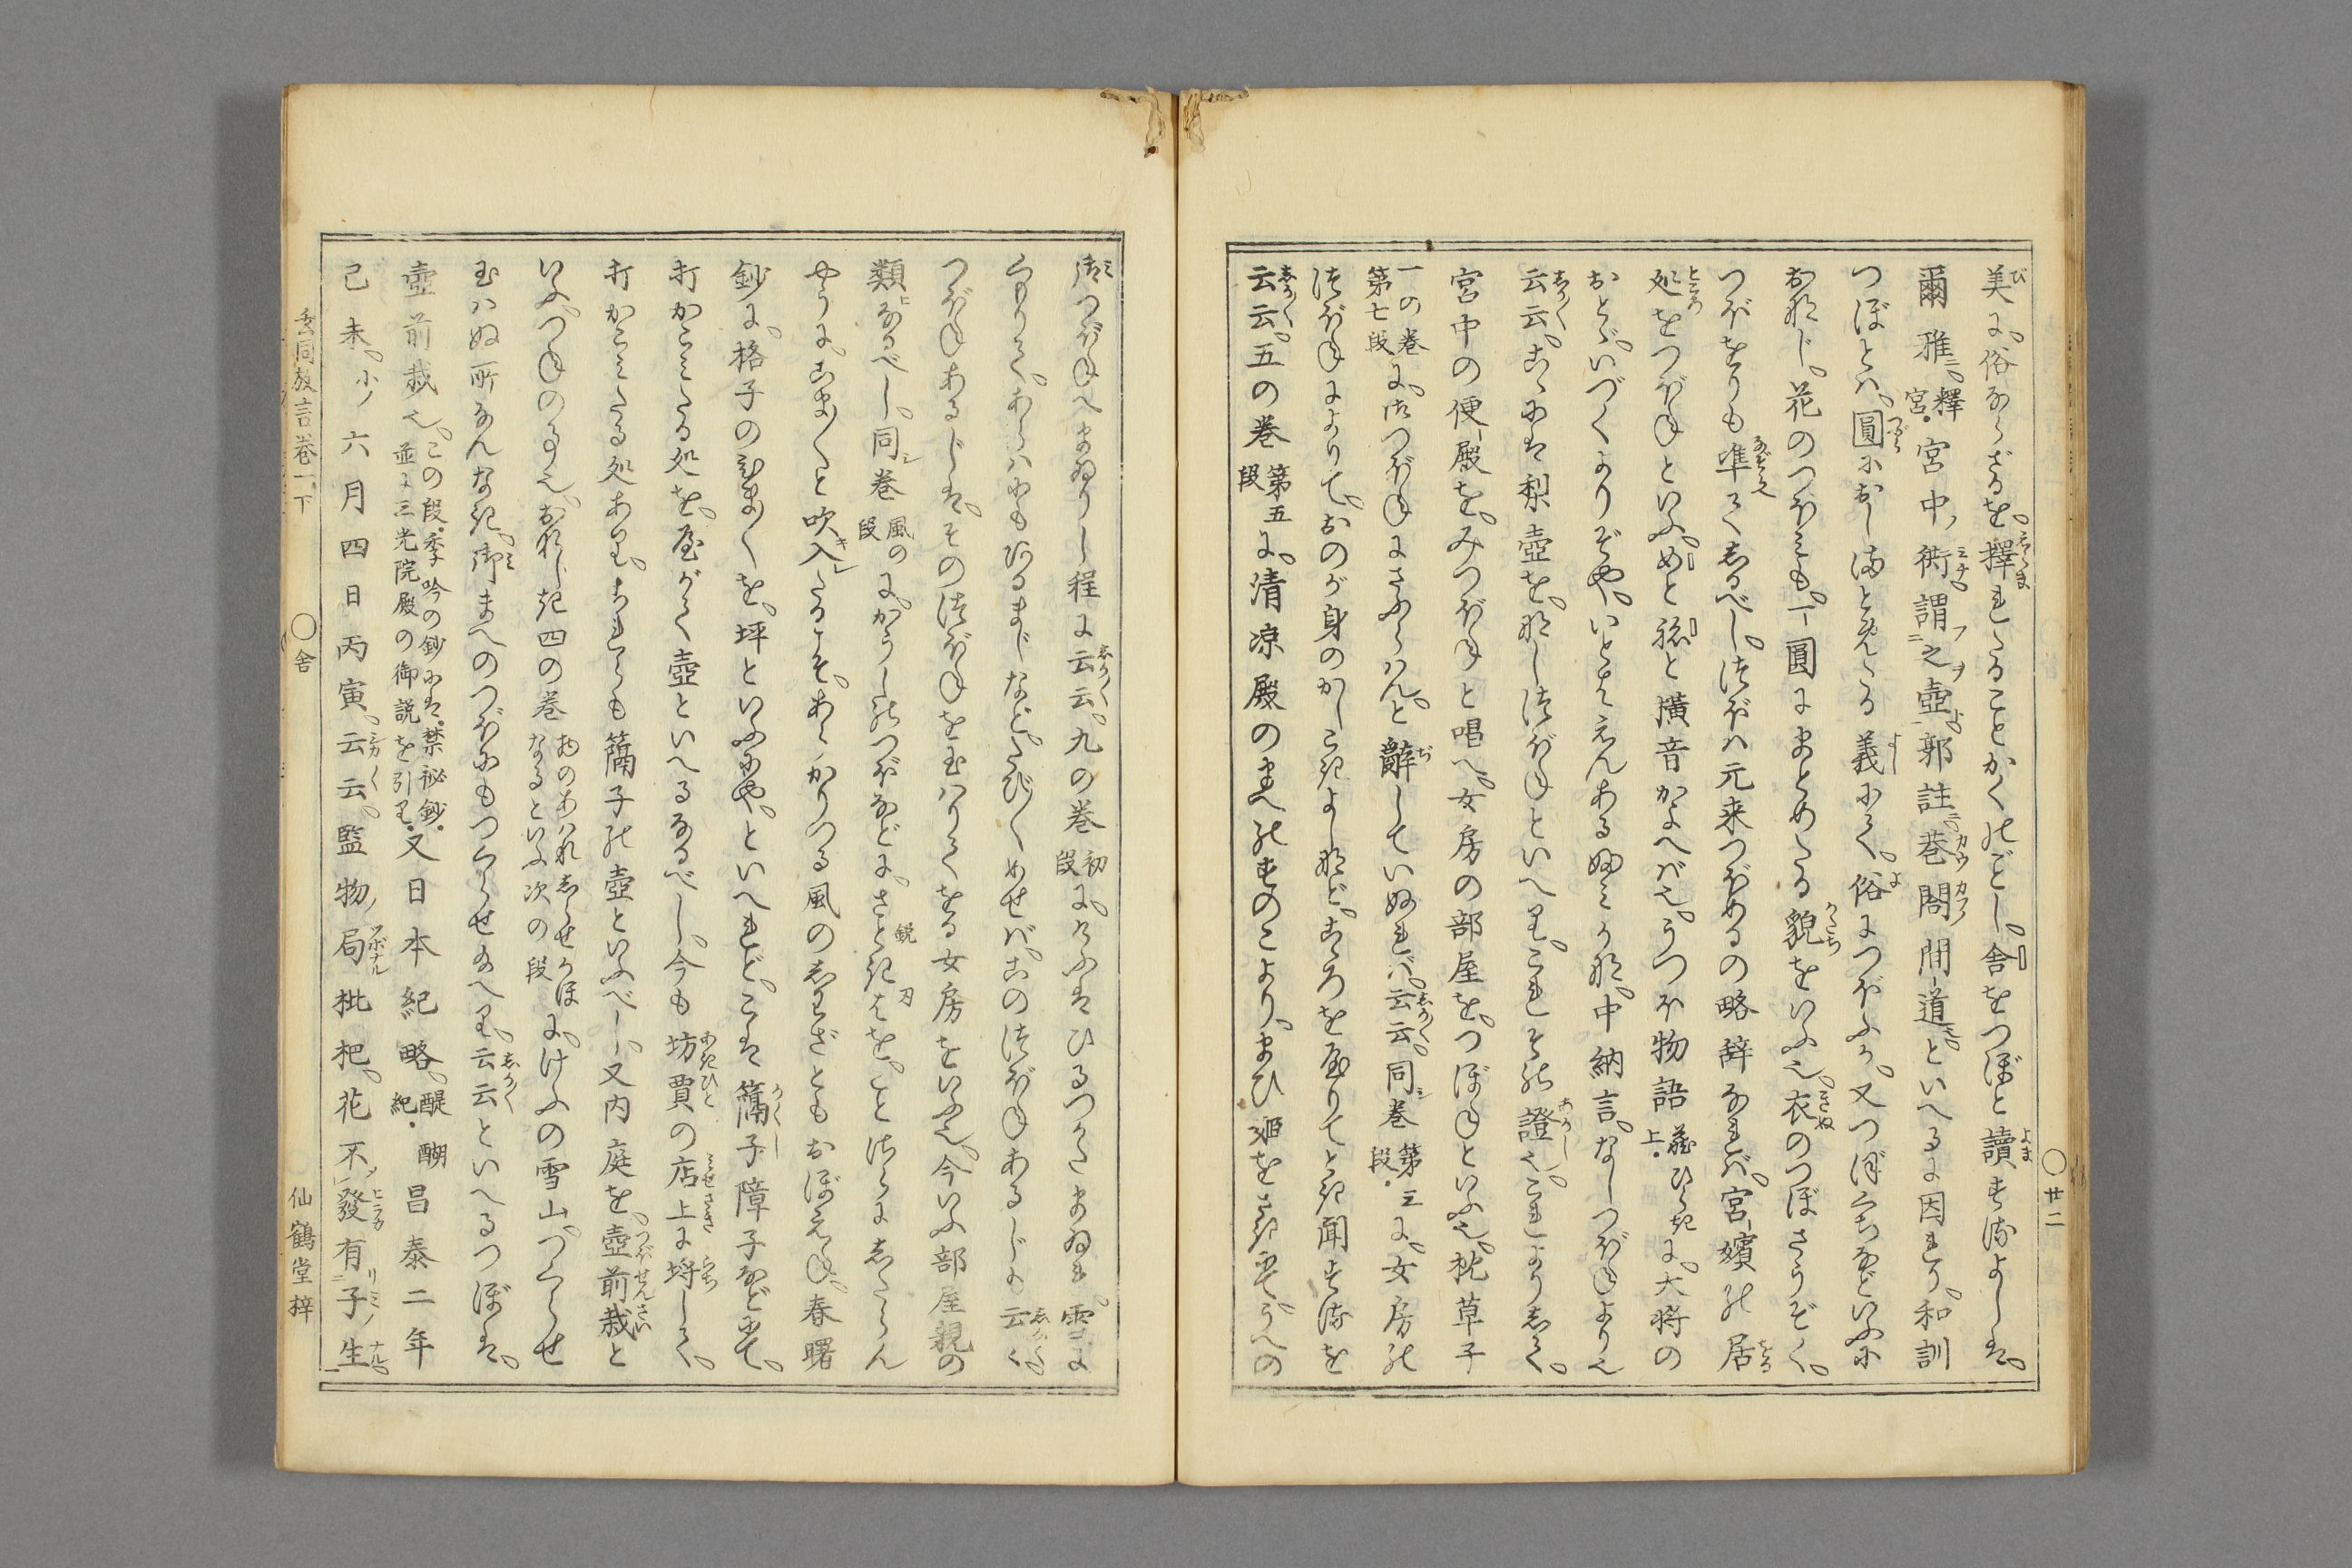 美に、俗ならざるを、擇れたることかくのごとし。舎をつぼと讀するよしは、
爾雅ニ、釋宮・宮中ノ衖謂之壺、郭註ニ、巷閤間道、といへるに因れり、和訓
つぼとは、圓にかしまとめたる義にて、俗につぼふか、又つぼむなどいふに
おなじ。花のつぼみも、圓にまとめたる貌をいふ也。衣のつぼさうぞく、
つぼをりも准てしるべし、つぼは元来つぼめるの略辞なれば、宮嬪の居
処をつぼねといふ、めと祢と横音かよへば也。うつほ物語藏ひらき上・に、大将の
おとゞ、いづくよりぞや、いとせえんあるふみかな、中納言、なしつぼねより也
云云、こゝには梨壺を、なしつぼねといへり、これその證也、これよりして、
宮中の便殿を、みつぼねと唱へ、女房の部屋を、つぼねといふ也、枕草子
一の巻第七段に、みつぼねにさふらはん、と辭していぬれば、云云、同巻第三段・に、女房の
つぼねによりて、おのが身のかしこきよしなど、こゝろをやりてとき聞するを
云云、五の巻第五段に、清凉殿のまへのそのこより、まひ姫をさきにてうへの
御つぼねへまゐりし程に云云、九の巻初段に、けふはひるつかたまゐれ、雪に
くもりて、あらはにもあるまじなど、たび〳〵めせば、このつぼねあるじも云〻、
つぼねあるじは、そのつぼねを玉はりてをる女房をいふ也、今いふ部屋親の
類なるべし、同巻風の段に、かうしのつぼなどに、さと鋭きはを、ことさらにしたらん
やうに、こま〴〵と吹入たるこそ、あらかりつる風のしわざともおぼえね、春曙
鈔に、格子のひま〳〵を、坪といふにや、といへれど、こは䈴子障子などにて、
打かこみたる処を、屋がくて壺といへるなるべし、今も坊賈の店上に埒して、
打かこみたる処あり、これらも䈴子の壺といふべし、又内庭を、壺前栽と
いふ、つねの事也、おなじき四の巻ものゝあはれしらせがほなるといふ次の段に、けふの雪山、つくらせ
玉はぬ所なんなき、御まへのつぼにもつくらせ給へり、云云といへるつぼは、
壺前栽也、この段・季吟の鈔には・禁祕鈔・並に三光院殿の御説を引り・又日本紀略、醍醐紀・昌泰二年
己未、小ノ六月四日丙寅、云云。監物ノ局枇杷、花不發有子生
玄同放言巻一下　〇舎　仙鶴堂梓
〇廿二